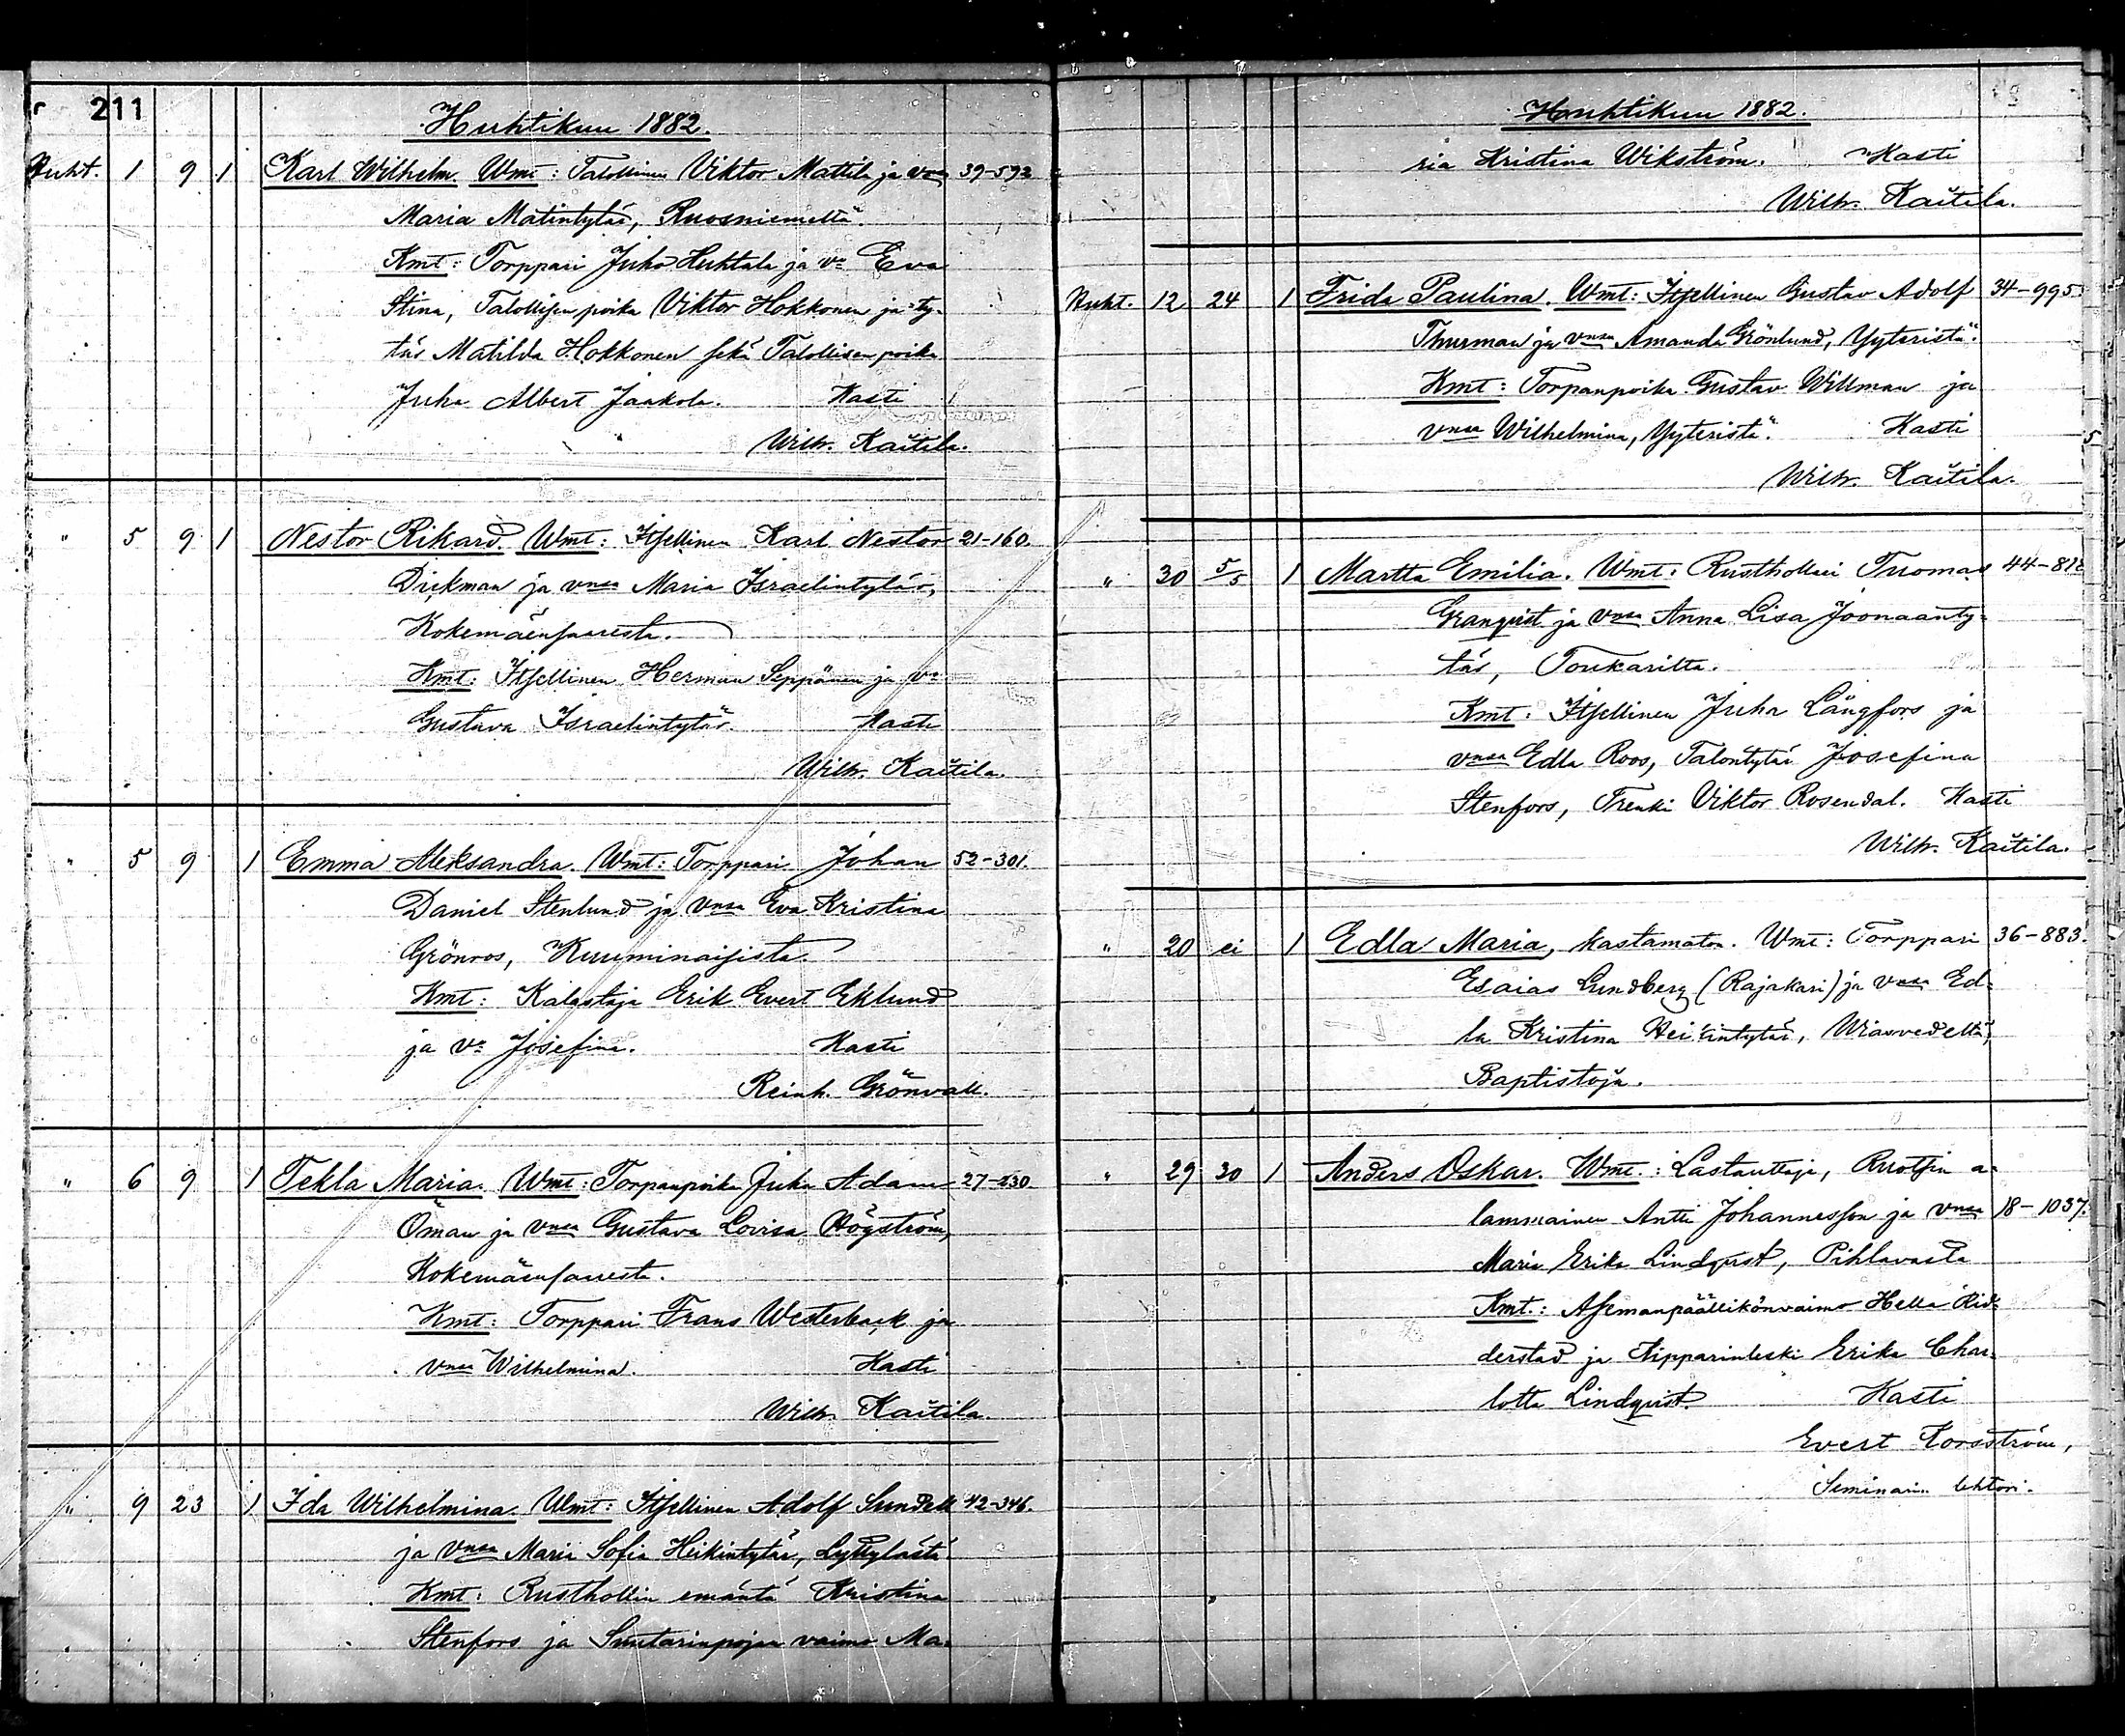 211
Huhtikuu 1882.
Huht. 1 9 1 Karl Wilhelm. Wmt: Talollinen Viktor Mattila ja vmsa 39-593
Maria Matintytär, Ruosniemeltä.
Kmt: Torppari Juho Huhtala ja va Eva
Stina, Talollisen poika Viktor Hokkonen ja ty-
tär Matilda Hokkonen sekä Talollisen poika
Juha Albert Jaakola. Kasti
Wilh. Kaitila.
" 5 9 1 Nestor Rikard. Wmt: Itsellinen Karl Nestor 21-160.
Dickman ja vmsa Maria Israelintytär,
Kokemäensaaresta.
Kmt: Itsellinen Herman Seppänen ja va
Gustava Israelintytär. Kasti
Wilh. Kaitila.
" 5 9 1 Emma Aleksandra. Wmt: Torppari Johan 52-301.
Daniel Stenlund ja vmsa Eva Kristina
Grönroos, Kuuminaisista.
Kmt: Kalastaja Erik Evert Eklund
ja va Josefina. Kasti
Reinh. Grönvall.
" 6 9 1 Tekla Maria. Wmt: Torpanpoika Juha Adam 27-230
Öman ja vmsa Gustava Lovisa Högström,
Kokemäensaaresta.
Kmt: Torppari Frans Westerback ja
vmsa Wilhelmina. Kasti
Wilh. Kaitila.
" 9 23 1 Ida Wilhelmina. Wmt: Itsellinen Adolf Sundell 42-346.
ja vmsa Maria Sofia Heikintytär, Lyttylästä
Kmt: Rusthollin emäntä Kristina
Stenfors ja Suutarinpojan vaimo Ma-
Huhtikuu 1882.
ria Kristina Wikström. Kasti
Wilh. Kaitila.
Huht. 12 24 1 Frida Paulina. Wmt: Itsellinen Gustav Adolf 34-995
Thurman ja vmsa Amanda Grönlund, Yyteristä.
Kmt: Torpanpoika Gustav Willman ja
vmsa Wilhelmina, Yyteristä. Kasti
Wilh. Kaitila.
" 30 5/5 1 Martta Emilia. Wmt: Rusthollari Tuomas
Granqvist ja vmsa Anna Lisa Joonaanty-
tär, Toukarilta.
Kmt: Itsellinen Juha Långfors ja
vmsa Edla Roos, Talontytär Josefina
Stenfors, Trenki Viktor Rosendal. Kasti
Wilh. Kaitila.
" 20 ei 1 Edla Maria, kastamaton. Wmt: Torppari 36-883.
Esaias Lundberg (Rajakari) ja vmsa Ed-
la Kristina Heikintytär, Wiasvedeltä,
Baptistoja.
" 29 30 1 Anders Oskar. Wmt.: Lastauttaja, Ruotsin a-
lammainen Antti Johannesson ja vmsa 18-1037.
Maria Erika Lindqvist, Pihlavasta
Kmt.: Asemanpäällikönvaimo Hella Rid-
derstad ja Kipparinleski Erika Char-
lotta Lindqvist. Kasti
Evert Korsström,
Seminarin lehtori.